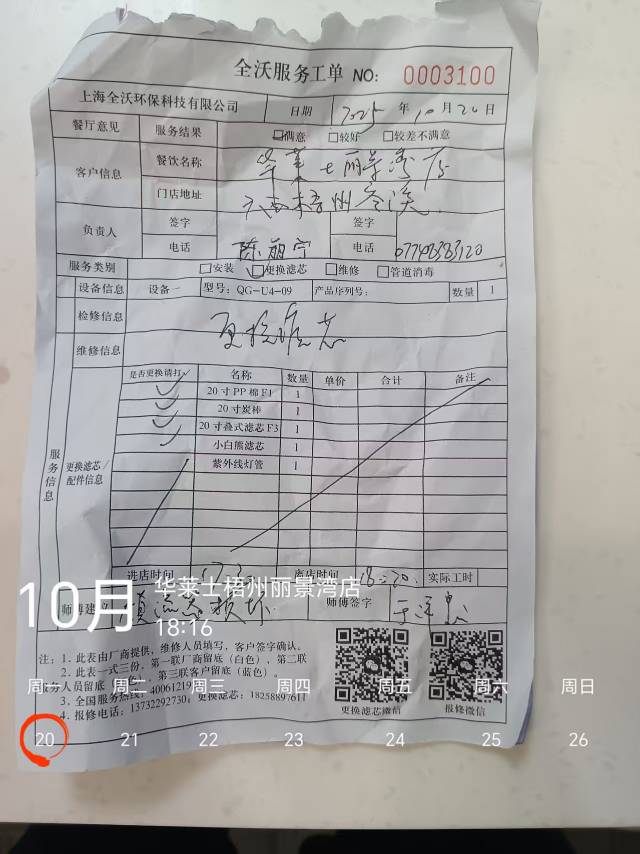 全沃服务工单 NO: 0003100
上海全沃环保科技有限公司 日期 2025 年 10 月 20 日
餐厅意见 服务结果 满意 较好 较差不满意
客户信息 餐饮名称 华莱士丽景湾店
门店地址 广西梧州
负责人 签字 陈丽宁 签字
电话 电话
服务类别 安装 更换滤芯 维修 管道消毒
设备信息 设备一 型号: QG-U4-09 产品序列号: 数量 1
检修信息 更换滤芯
维修信息
服务信息
更换滤芯/配件信息
是否更换请打√ 名称 数量 单价 合计 备注
√ 20寸PP棉F1 1
√ 20寸炭棒 1
√ 20寸叠式滤芯F3 1
√ 小白熊滤芯 1
紫外线灯管 1
进店时间 离店时间 18:20 实际工时
师傅建议 师傅签字
10月 华莱士梧州丽景湾店
18:16
注: 1. 此表由厂商提供, 维修人员填写, 客户签字确认。
2. 此表一式三份, 第一联厂商留底(白色), 第二联
服务人员留底 第三联客户留底(蓝色)。
3. 全国服务热线: 40061219 更换滤芯: 18258897611
4. 报修电话: 13732292730;
更换滤芯微信 报修微信
周一 周二 周三 周四 周五 周六 周日
20 21 22 23 24 25 26